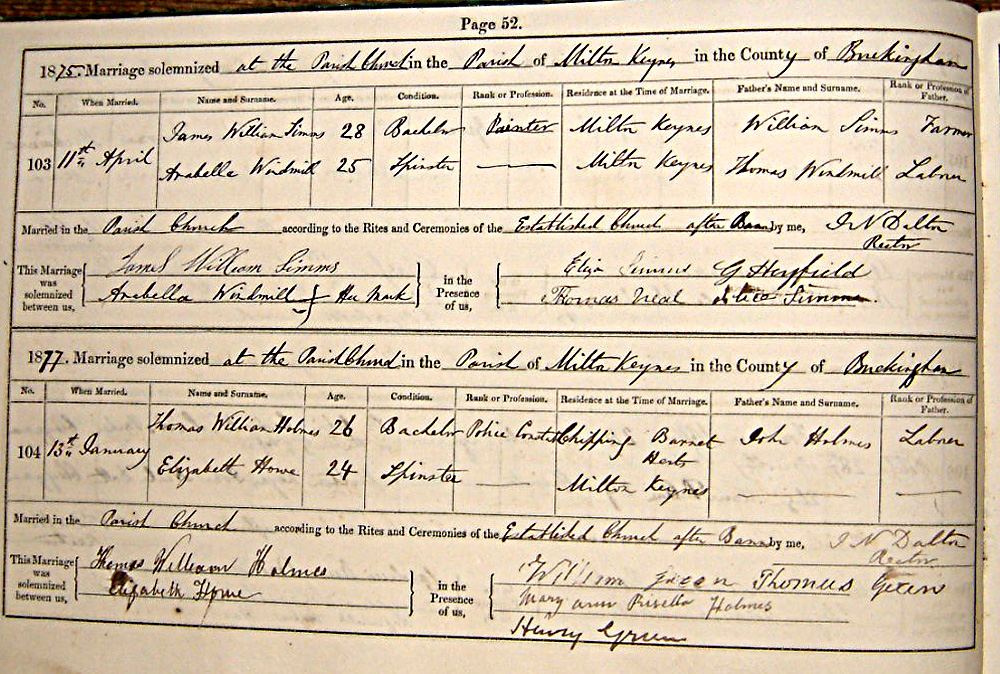 Page 52.
1875. Marriage solemnized at the Parish Church in the Parish of Milton Keynes in the County of Buckingham
No. When Married. Name and Surname. Age. Condition. Rank or Profession. Residence at the Time of Marriage. Father's Name and Surname. Rank or Profession of Father.
103 11th April James William Simms 28 Bachelor Painter Milton Keynes William Simms Farmer
Arabella Windmill 25 Spinster — Milton Keynes Thomas Windmill Labner
Married in the Parish Church according to the Rites and Ceremonies of the Established Church after Banns by me, J N Dalton
Rector
This Marriage was solemnized between us, James William Simms in the Presence of us, Eliza Simms G Hayfield
Arabella Windmill Her Mark Thomas Neal Alice Simms.
1877. Marriage solemnized at the Parish Church in the Parish of Milton Keynes in the County of Buckingham
No. When Married. Name and Surname. Age. Condition. Rank or Profession. Residence at the Time of Marriage. Father's Name and Surname. Rank or Profession of Father.
104 13th January Thomas William Holmes 26 Bachelor Police Constable Chipping Barnet Herts John Holmes Labner
Elizabeth Howe 24 Spinster — Milton Keynes — —
Married in the Parish Church according to the Rites and Ceremonies of the Established Church after Banns by me, J N Dalton
Rector
This Marriage was solemnized between us, Thomas William Holmes in the Presence of us, William Green Thomas Green
Elizabeth Howe Mary ann Holmes
Henry Green